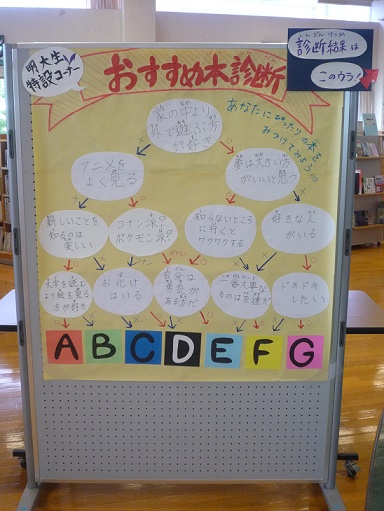 明大生
特設コーナー
おすすめ本診断
しんだんけっか
診断結果は
このウラ!
あなたにぴったりの本を
みつけてみよう!!
家の中より
外で遊ぶ方
が好き
アニメを
よく見る
夢は大きい方
がいいと思う
新しいことを
知るのは
楽しい
コナン派?
ポケモン派?
知らないところ
に行くと
ワクワクする
好きな人
がいる
文字を読む
より絵を見る
方が好き
お化け
はいる
自分は
勇気が
ある方だ
一番大事な
ものは友達だ
ドキドキ
したい
A B C D E F G